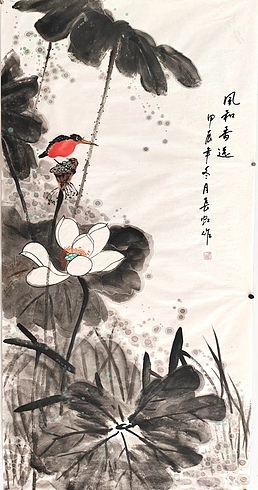 风和香远
甲辰年冬月长虹作